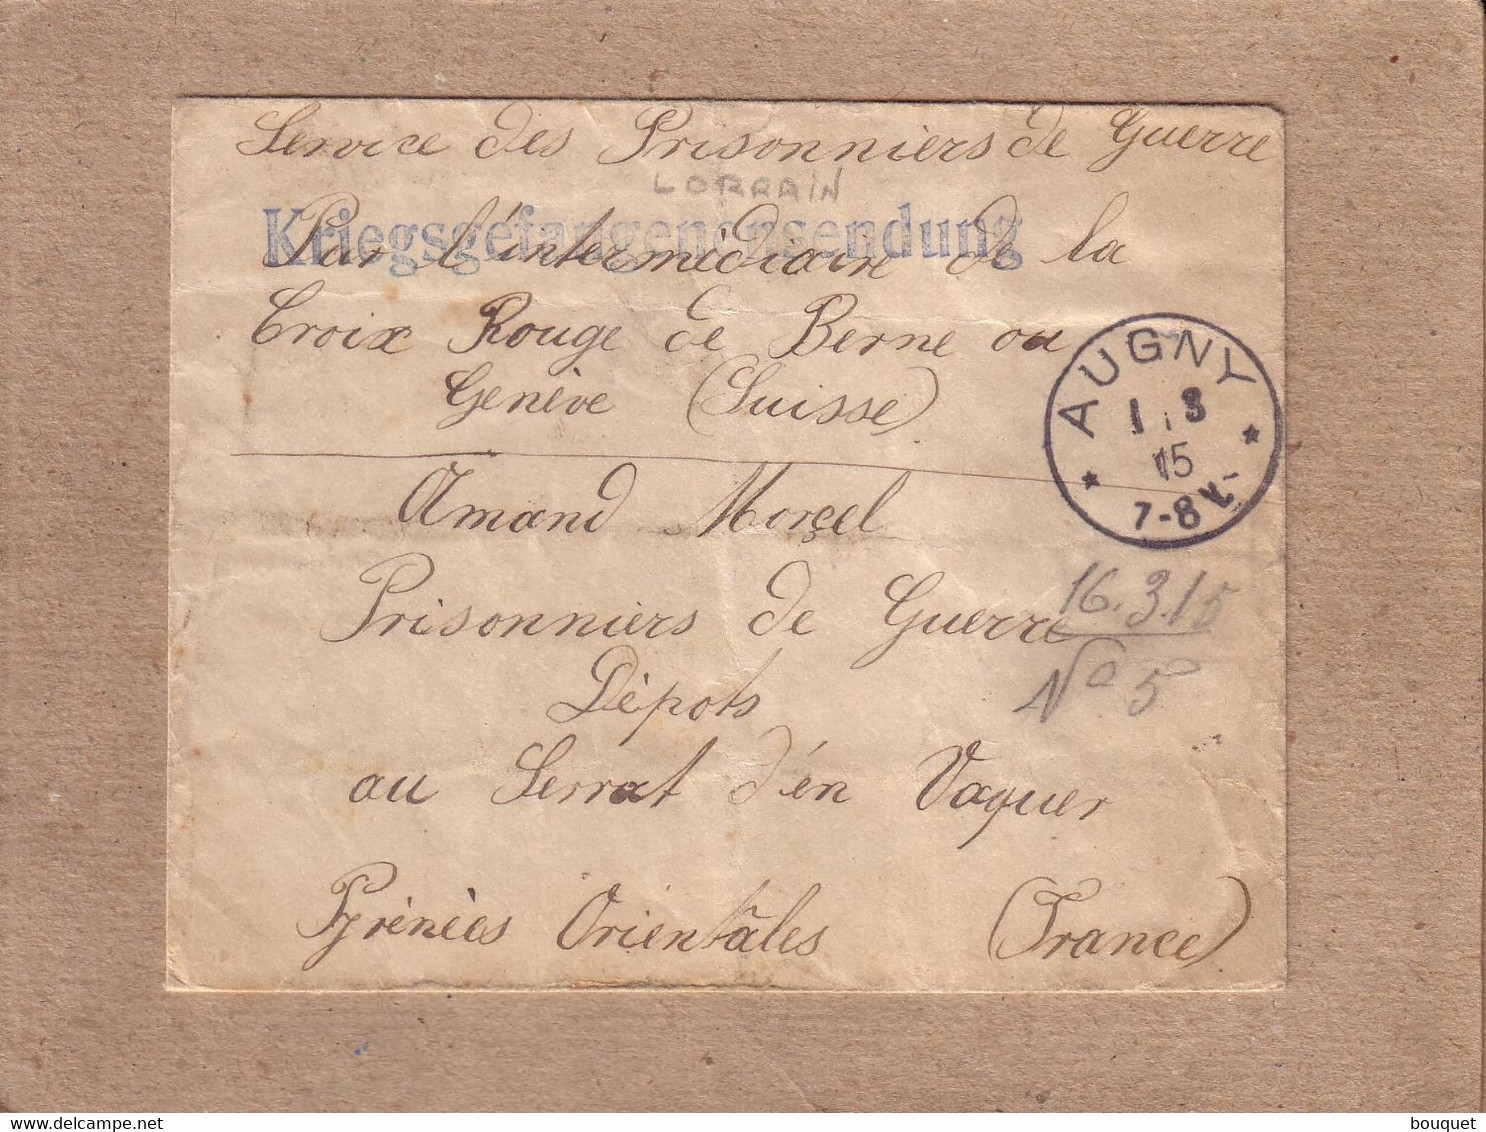 Service des Prisonniers de Guerre
LORRAIN
Kriegsgefangenensendung
Par l'intermédiaire de la
Croix Rouge de Berne ou
Genève (Suisse)
AUGNY
1 3
15
7-8 V.
Amand Morçel
Prisonniers de Guerre
16.3.15
No 5
Dépots
au Serrat d'én Vaquer
Pyrénèes Orientales (France)
bouquet